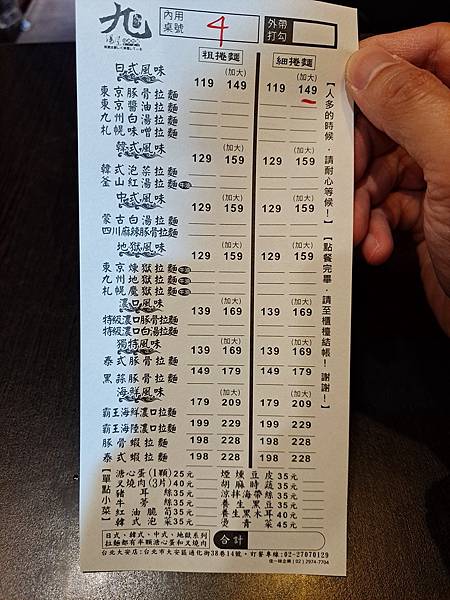 九
內用
桌號
4
外帶
打勾
粗捲麵 細捲麵
日式風味 119 (加大) 149 119 (加大) 149
東京豚骨拉麵
東京醬油拉麵
九州白湯拉麵
札幌味噌拉麵
韓式風味 129 (加大) 159 129 (加大) 159
韓式泡菜拉麵
釜山紅湯拉麵
中式風味 129 (加大) 159 129 (加大) 159
蒙古白湯拉麵
四川麻辣豚骨拉麵
地獄風味 129 (加大) 159 129 (加大) 159
東京煉獄拉麵
九州地獄拉麵
札幌魔獄拉麵
濃口風味 139 (加大) 169 139 (加大) 169
特級濃口豚骨拉麵
特級濃口白湯拉麵
獨特風味 139 (加大) 169 139 (加大) 169
泰式豚骨拉麵
黑蒜豚骨拉麵 149 179 149 179
海鮮風味 179 (加大) 209 179 (加大) 209
霸王海鮮濃口拉麵 199 229 199 229
霸王海陸濃口拉麵 199 229 199 229
豚骨蝦拉麵 198 228 198 228
泰式蝦拉麵 198 228 198 228
【人多的時候，請耐心等候！】【點餐完畢，請至櫃檯結帳！謝謝！】
【單點小菜】
溏心蛋(1顆)25元 煙燻豆皮35元
叉燒肉(3片)40元 胡麻時蔬35元
豬耳絲35元 涼拌海帶絲35元
牛蒡絲35元 養生黑豆35元
紅油脆筍35元 養生黑木耳40元
韓式泡菜35元 燙青菜45元
日式、韓式、中式、地獄系列
拉麵都有半顆溏心蛋和叉燒肉
合計
台北大安店:台北市大安區通化街38巷14號・訂餐專線:02-27070129
佳一味企業 (02) 2974-7704